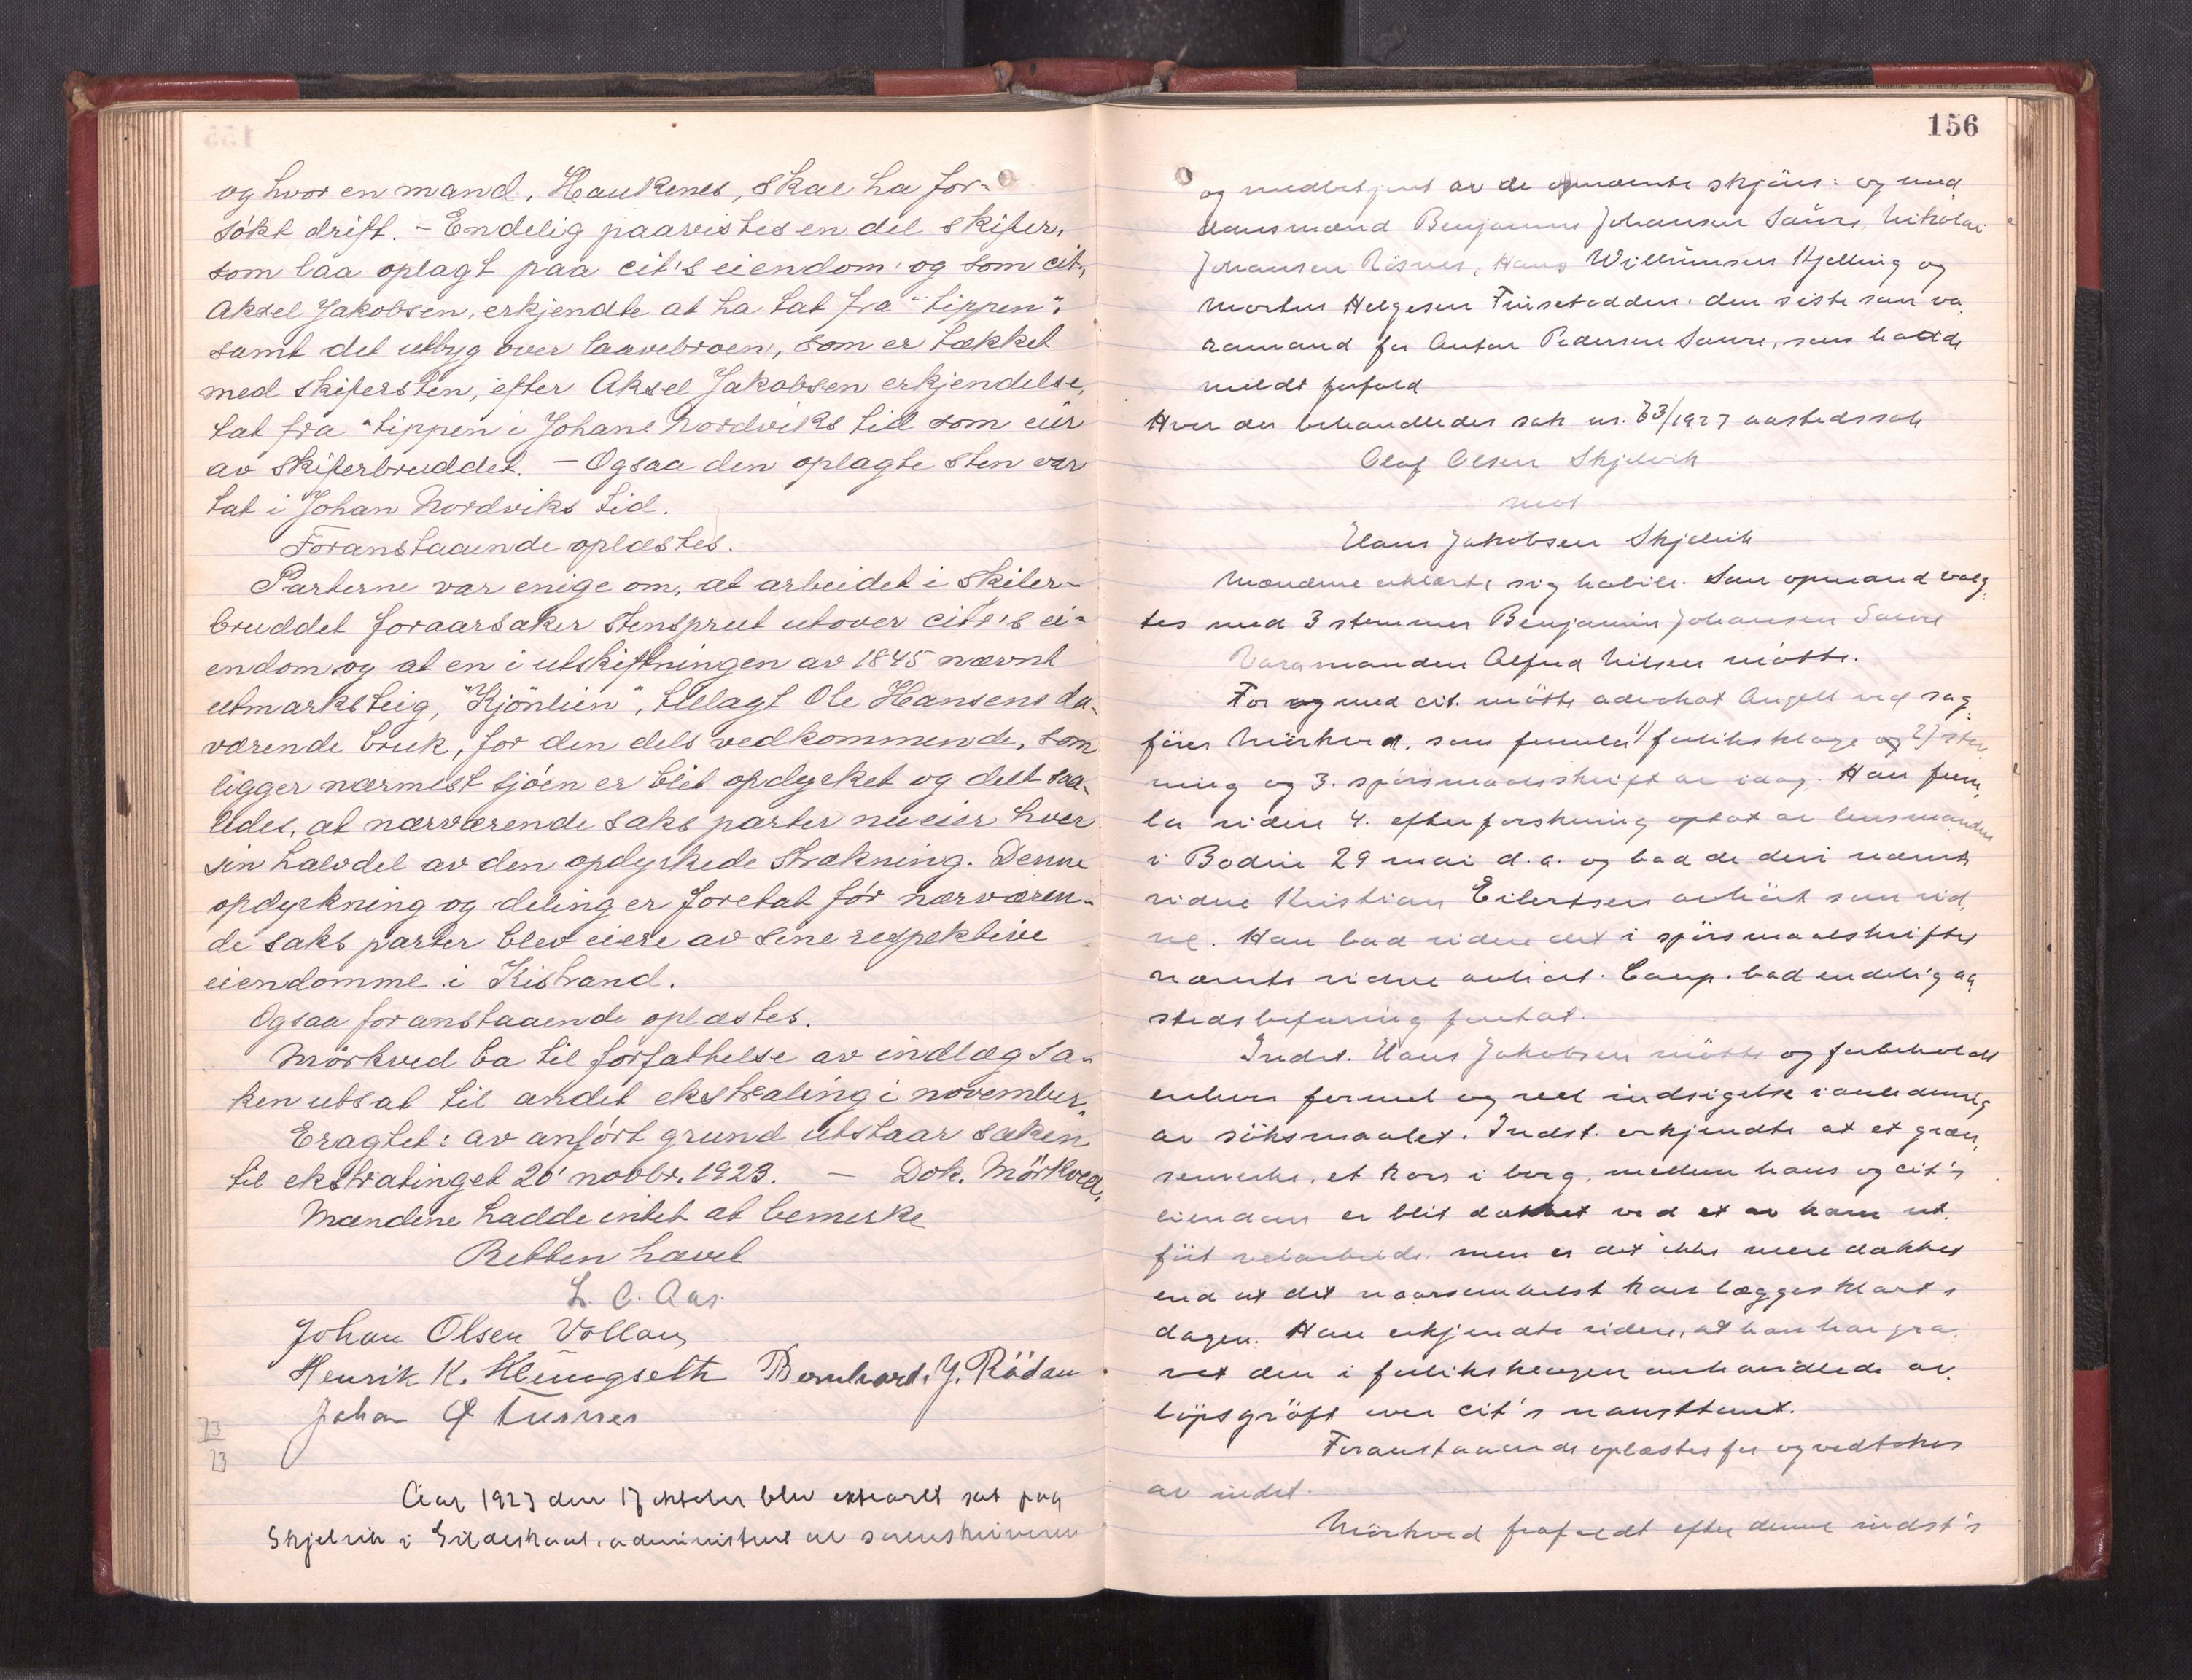 og hvor en mand, Haukenes, skal ha for-
søkt drift. - Endelig paavistes en del skifer,
som laa oplagt paa cit's eiendom og som cit.,
Aksel Jakobsen, erkjendte at ha tat fra "tippen",
samt det utbyg over laavebroen, som er tækket
med skifersten, efter Aksel Jakobsen erkjendelse,
tat fra "tippen i Johans Nordviks tid som eier
av skiferbruddet. - Ogsaa den oplagte sten var
tat i Johan Nordviks tid.
Foranstaaende oplæstes.
Parterne var enige om, at arbeidet i skifer-
bruddet foraarsaker stensprut utover cit's ei-
endom og at en i utskiftningen av 1845 nævnt
utmarksteig, "Kjönlien", tillagt Ole Hansens da-
værende bruk, for den dels vedkommende, som
ligger nærmest sjöen er blit opdyrket og delt saa-
ledes, at nærværende saks parter nu eier hver
sin halvdel av den opdyrkede strækning. Denne
opdyrkning og deling er foretat før nærværen-
de saks parter blev eiere av sine respektive
eiendomme i Kistrand.
Ogsaa foranstaaende oplæstes.
Mörkved ba til forfattelse av indlæg sa-
ken utsat til andet ekstrating i november.
Eragtet: av anført grund utstaar saken
til ekstratinget 20' novbr. 1923. — Dok. Mörkved.
Mændene hadde intet at bemerke
Retten hævet
L. C. Aas.
Johan Olsen Vollan
Henrik K. Klungseth Bernhard. J. Rödau
Johan
73
23
Aar 1923 den 17 oktober blev ekstrarett sat paa
Skjelvik i Gildeskaal, administrert av sorenskriveren
156
og medbetjent av de opnævnte skjöns- og med
domsmænd Benjamin Johansen Saure, Nikolai
Johansen Risnes, Hans Willumsen Kjelling og
Morten Helgesen Finsetodden, den siste som va-
ramand for Anton Pedersen Saure, som hadde
meldt forfald
Hvor der behandledes sak nr. 73/1923 aastedssak
Olaf Olsen Skjelvik
mot
Hans Jakobsen Skjelvik
Mændene erklærte sig habile. Som opmand valg-
tes med 3 stemmer Benjamin Johansen Saure
Varamanden Alfred Nilsen mötte.
For og med cit. mötte advokat Angell ved sag-
förer Mörkved, som fremla 1) forliksklage og 2) stev
ning og 3. spörsmaalsskrift av idag. Han frem-
la videre 4. efterforskning optat av lensmanden
i Bodin 29 mai d.a. og bad de deri nævnte
vidne Kristian Eilertsen avhört som vid-
ne. Han bad videre det i spörsmaalskriftet
nævnte vidne avhört. Comp. bad endelig aa-
stedsbefaring foretat.
Indst. Hans Jakobsen mötte og forbeholdt
enhver formel og reel indsigelse i anledning
av söksmaalet. Indst. erkjendte at et græn-
semerke, et kors i berg, mellem hans og cit's
eiendom er blit dækket ved et av ham ut-
fört veiarbeide. men er det ikke mere dækket
end at det naarsomhelst kan lægges klart i
dagen. Han erkjendte videre, at han har gra-
vet den i forliksklagen omhandlede av-
löpsgröft over cit's nausttomt.
Foranstaaende oplæstes for og vedtokes
av indst.
Mörkved frafaldt efter denne indst's